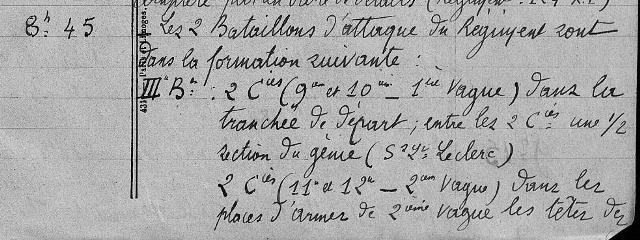 par un
8h. 45 Les 2 Bataillons d'attaque du Régiment sont
dans la formation suivante :
III° Bn : 2 Cies (9em et 10em – 1ère Vague) dans la
tranchée de départ ; entre les 2 Cies une 1/2
section du génie (Leclerc)
2 Cies (11e et 12e – 2em Vague) dans les
places d'armes de 2ième vague les têtes des